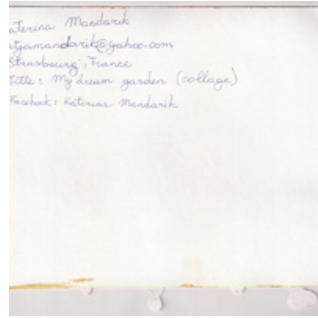 aterina Mandarik
atjamandarik@yahoo.com
Strasbourg, France
Title: My dream garden (collage)
Facebook: Katerina Mandarik